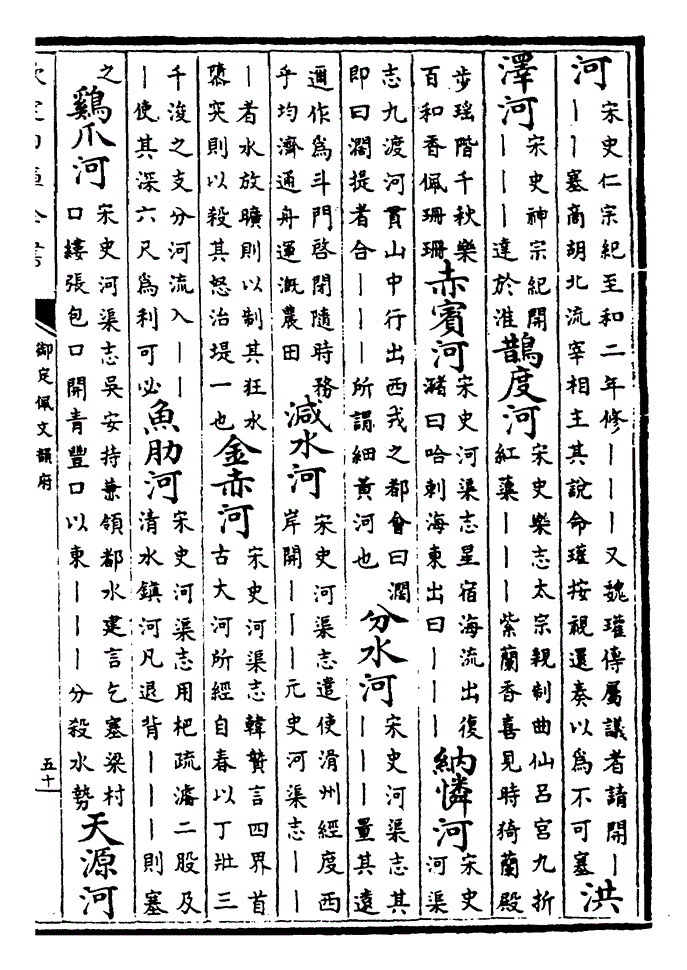 河宋史仁宗紀至和二年修｜｜｜｜又魏瓘傳屬議者請開｜
｜｜塞商胡北流宰相主其說命瓘按視還奏以為不可塞洪
澤河宋史神宗紀開
｜｜｜達於淮鵲度河宋史樂志太宗親制曲仙呂宮九折
紅蕖｜｜｜紫蘭香喜見時猗蘭殿
步瑶階千秋樂
百和香佩珊珊赤賓河宋史河渠志星宿海流出復
瀦曰哈剌海東出曰｜｜｜納憐河宋史
河渠
志九渡河貫山中行出西戎之都會曰濶
即曰濶提者合｜｜｜所謂細黄河也分水河宋史河渠志其
｜｜｜量其遠
邇作為斗門啓閉隨時務
乎均濟通舟運溉農田減水河宋史河渠志遣使滑州經度西
岸開｜｜｜元史河渠志｜｜
｜者水放曠則以制其狂水
隳突則以殺其怒治堤一也金赤河宋史河渠志韓贄言四界首
古大河所經自春以丁壯三
千浚之支分河流入｜｜
｜使其深六尺為利可必魚肋河宋史河渠志用杷疏濬二股及
清水鎮河凡退背｜｜｜則塞
之雞爪河宋史河渠志吳安持兼領都水建言乞塞梁村
口縷張包口開青豐口以東｜｜｜分殺水勢天源河
御定佩文韻府
五十